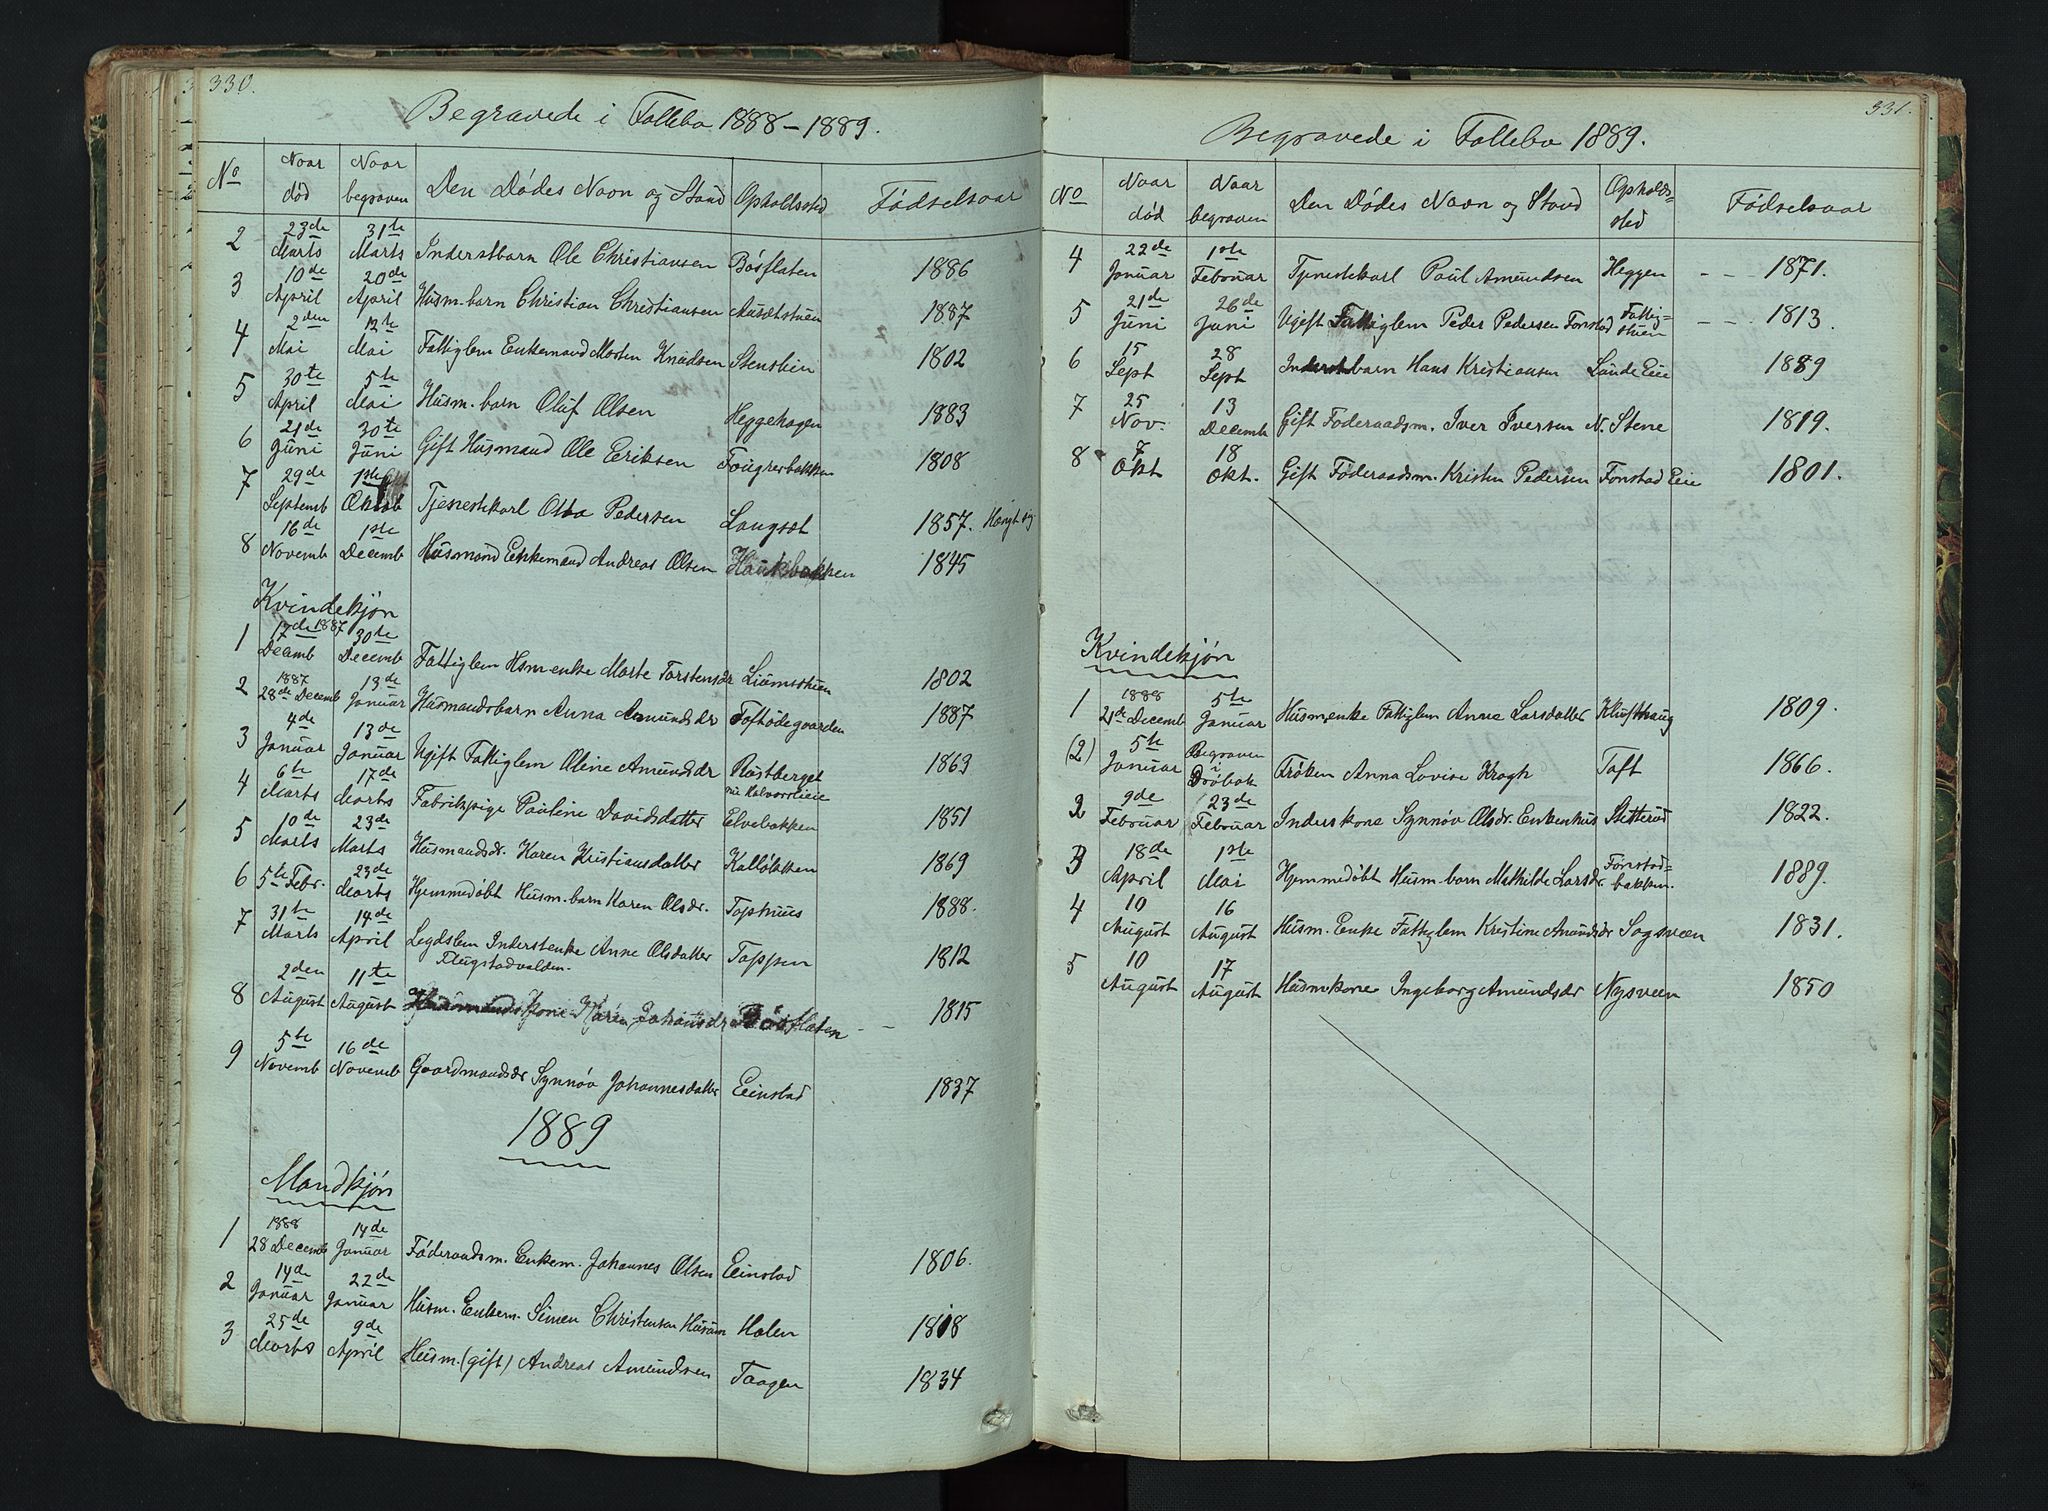 330.
Begravede i Follebo 1888–1889.
No | Naar død | Naar begraven | Den Dødes Navn og Stand | Opholdssted | Fødselsaar
2 | 23de Marts | 31te Marts | Inderstbarn Ole Christiansen | Bøsflaten | 1886
3 | 10de April | 20de April | Husm. barn Christian Christiansen | | 1887
4 | 2den Mai | 12te Mai | Fattiglem Enkemand Morten Knudsen | Stenslien | 1802
5 | 30te April | 5te Mai | Husm. barn Oluf Olsen | Heggehagen | 1883
6 | 21de Juni | 30te Juni | Gift Husmand Ole Eriksen | | 1808
7 | 29de Septemb | 1ste Oktob | Tjenestekarl Otto Pedersen | Langsæt | 1857. Hængt sig
8 | 16de Novemb | 1ste Decemb | Husmand Enkemand Andreas Olsen | Haukbakken | 1845
Kvindekjøn
1 | 17de 1887 Decemb | 30te Decemb | Fattiglem Hsm.enke Marte Torstensdr | Liumstuen | 1802
2 | 1887 28de Decemb | 13de Januar | Husmandsbarn Anna Amundsdr | Toftødegaarden | 1887
3 | 4de Januar | 13de Januar | Ugift Fattiglem Oline Amundsdr | Rustberget | 1863
4 | 6te Marts | 17de Marts | Fabrikpige Pauline Davidsdatter | Elvebakken | 1851
5 | 10de Marts | 23de Marts | Husmandsdr. Karen Kristiansdatter | Kalløkken | 1869
6 | 5te Febr. | 23de Marts | Hjemmedøbt Husm. barn Karen Olsdr. | | 1888.
7 | 31te Marts | 14de April | Legdslem Inderstenke Anne Olsdatter Flugstadvalden. | Toppen | 1812
8 | 2den August | 11te August | Husmandskone Karen Johansdr | Bøsflaten | – 1815
9 | 5te Novemb | 16de Novemb | Gaardmandsdr Synnøv Johannesdatter | Einstad | 1837
1889
Mandkjøn
1 | 1888 28 Decemb | 14de Januar | Føderaadsm. Enkem. Johannes Olsen | Einstad | 1806.
2 | 14de Januar | 22de Januar | Husm. Enkem. Simen Christensen | Holen | 1818
3 | 25de Marts | 9de April | Husm. (gift) Andreas Amundsen | Taagen | 1834
331.
Begravede i Follebo 1889.
No | Naar død | Naar begraven | Den Dødes Navn og Stand | Opholdssted | Fødselsaar
4 | 22de Januar | 1ste Februar | Tjenestekarl Paul Amundsen | Heggen | – – 1871.
5 | 21de Juni | 26de Juni | Ugift Fattiglem Peder Pedersen Fonstad | Fattigstuen | – – 1813.
6 | 15 Sept | 28 Sept | Inderstbarn Hans Kristiansen | Lunde Eie | 1889
7 | 25 Nov. | 13 Decemb | Gift Føderaadsm. Iver Iversen | N. Stene | 1819.
8 | 7 Okt | 18 Okt. | Gift Føderaadsm. Kristen Pedersen | Fonstad Eie | 1801.
Kvindekjøn
1 | 1888 21de Decemb | 5te Januar | Husm.enke Fattiglem Anne Larsdatter | Klufthaug | 1809.
(2) | 5te Januar | Begraven i Drøbak | Frøken Anna Lovise Krogh | Toft | 1866.
2 | 9de Februar | 23de Februar | Inderskone Synnøv Olsdr. Enkenhus | Slitterud | 1822.
3 | 18de April | 1ste Mai | Hjemmedøbt Husm. barn Mathilde Larsdr. | Fonstadbakken. | 1889.
4 | 10 August | 16 August | Husm. Enke Fattiglem Kristine Amundsdr | Sagsveen | 1831.
5 | 10 August | 17 August | Husm.kone Ingeborg Amundsdr | Nysveen | 1850